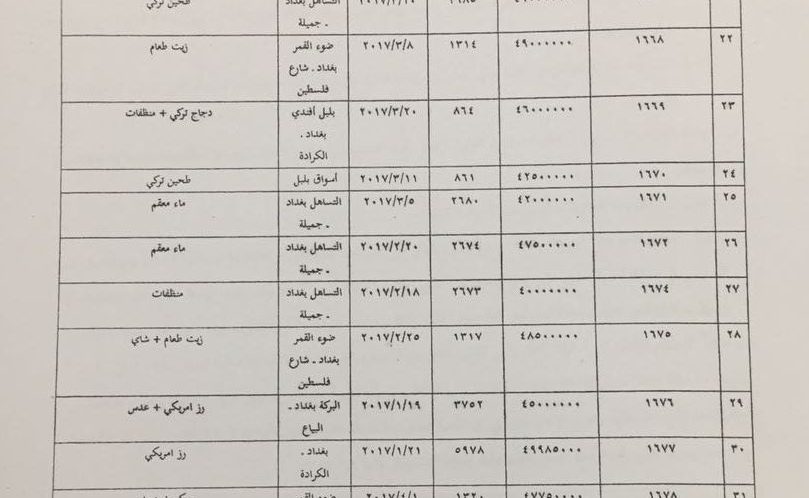 طحين تركي التساهل بغداد
ـ جميلة
٢٢ ١٦٦٨ ٤٩٠٠٠٠٠٠ ١٣١٤ ٢٠١٧/٣/٨ ضوء القمر زيت طعام
بغداد ـ شارع
فلسطين
٢٣ ١٦٦٩ ٤٦٠٠٠٠٠٠ ٨٦٤ ٢٠١٧/٣/٢٠ بلبل أفندي دجاج تركي + منظفات
بغداد ـ
الكرادة
٢٤ ١٦٧٠ ٤٢٥٠٠٠٠٠ ٨٦١ ٢٠١٧/٣/١١ أسواق بلبل طحين تركي
٢٥ ١٦٧١ ٤٢٠٠٠٠٠٠ ٢٦٨٠ ٢٠١٧/٣/٥ التساهل بغداد ماء معقم
ـ جميلة
٢٦ ١٦٧٢ ٤٧٥٠٠٠٠٠ ٢٦٧٤ ٢٠١٧/٢/٢٠ التساهل بغداد ماء معقم
ـ جميلة
٢٧ ١٦٧٤ ٤٠٠٠٠٠٠٠ ٢٦٧٣ ٢٠١٧/٢/١٨ التساهل بغداد منظفات
ـ جميلة
٢٨ ١٦٧٥ ٤٨٥٠٠٠٠٠ ١٣١٧ ٢٠١٧/٢/٢٥ ضوء القمر زيت طعام + شاي
بغداد ـ شارع
فلسطين
٢٩ ١٦٧٦ ٤٥٠٠٠٠٠٠ ٣٧٥٢ ٢٠١٧/١/١٩ البركة بغداد ـ رز امريكي + عدس
البياع
٣٠ ١٦٧٧ ٤٩٩٨٥٠٠٠ ٥٩٧٨ ٢٠١٧/١/٢١ بغداد ـ رز امريكي
الكرادة
٣١ ١٦٧٨ ٤٧٧٥٠٠٠٠ ١٣٢٠ ٢٠١٧/٤/١ ضوء القمر